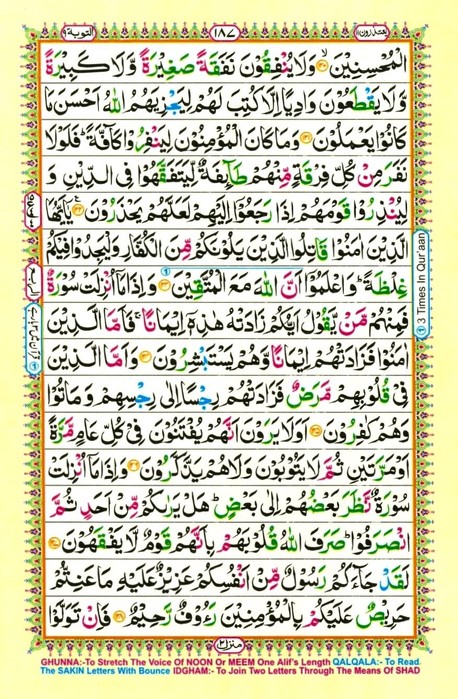 يعتذرون ١١
١٨٧
التوبة ٩
الْمُحْسِنِيْنَ ۞ وَلَا يُنْفِقُوْنَ نَفَقَةً صَغِيْرَةً وَّلَا كَبِيْرَةً
وَّلَا يَقْطَعُوْنَ وَادِيًا اِلَّا كُتِبَ لَهُمْ لِيَجْزِيَهُمُ اللّٰهُ اَحْسَنَ مَا
كَانُوْا يَعْمَلُوْنَ ۞ وَمَا كَانَ الْمُؤْمِنُوْنَ لِيَنْفِرُوْا كَآفَّةً ؕ فَلَوْلَا
نَفَرَ مِنْ كُلِّ فِرْقَةٍ مِّنْهُمْ طَآئِفَةٌ لِّيَتَفَقَّهُوْا فِى الدِّيْنِ وَ
لِيُنْذِرُوْا قَوْمَهُمْ اِذَا رَجَعُوْۤا اِلَيْهِمْ لَعَلَّهُمْ يَحْذَرُوْنَ ۞ يٰۤاَيُّهَا
الَّذِيْنَ اٰمَنُوْا قَاتِلُوا الَّذِيْنَ يَلُوْنَكُمْ مِّنَ الْكُفَّارِ وَلْيَجِدُوْا فِيْكُمْ
غِلْظَةً ؕ وَاعْلَمُوْۤا اَنَّ اللّٰهَ مَعَ الْمُتَّقِيْنَ ۞ وَاِذَا مَاۤ اُنْزِلَتْ سُوْرَةٌ
فَمِنْهُمْ مَّنْ يَّقُوْلُ اَيُّكُمْ زَادَتْهُ هٰذِهٖۤ اِيْمَانًا ۚ فَاَمَّا الَّذِيْنَ
اٰمَنُوْا فَزَادَتْهُمْ اِيْمَانًا وَّهُمْ يَسْتَبْشِرُوْنَ ۞ وَاَمَّا الَّذِيْنَ
فِىْ قُلُوْبِهِمْ مَّرَضٌ فَزَادَتْهُمْ رِجْسًا اِلٰى رِجْسِهِمْ وَمَاتُوْا
وَهُمْ كٰفِرُوْنَ ۞ اَوَلَا يَرَوْنَ اَنَّهُمْ يُفْتَنُوْنَ فِىْ كُلِّ عَامٍ مَّرَّةً
اَوْ مَرَّتَيْنِ ثُمَّ لَا يَتُوْبُوْنَ وَلَا هُمْ يَذَّكَّرُوْنَ ۞ وَاِذَا مَاۤ اُنْزِلَتْ
سُوْرَةٌ نَّظَرَ بَعْضُهُمْ اِلٰى بَعْضٍ ؕ هَلْ يَرٰىكُمْ مِّنْ اَحَدٍ ثُمَّ
انْصَرَفُوْا ؕ صَرَفَ اللّٰهُ قُلُوْبَهُمْ بِاَنَّهُمْ قَوْمٌ لَّا يَفْقَهُوْنَ ۞
لَقَدْ جَآءَكُمْ رَسُوْلٌ مِّنْ اَنْفُسِكُمْ عَزِيْزٌ عَلَيْهِ مَا عَنِتُّمْ
حَرِيْصٌ عَلَيْكُمْ بِالْمُؤْمِنِيْنَ رَءُوْفٌ رَّحِيْمٌ ۞ فَاِنْ تَوَلَّوْا
منزل ٢
① 3 Times In Qur'aan
GHUNNA:-To Stretch The Voice Of NOON Or MEEM One Alif's Length QALQALA:- To Read
The SAKIN Letters With Bounce IDGHAM:- To Join Two Letters Through The Means Of SHAD